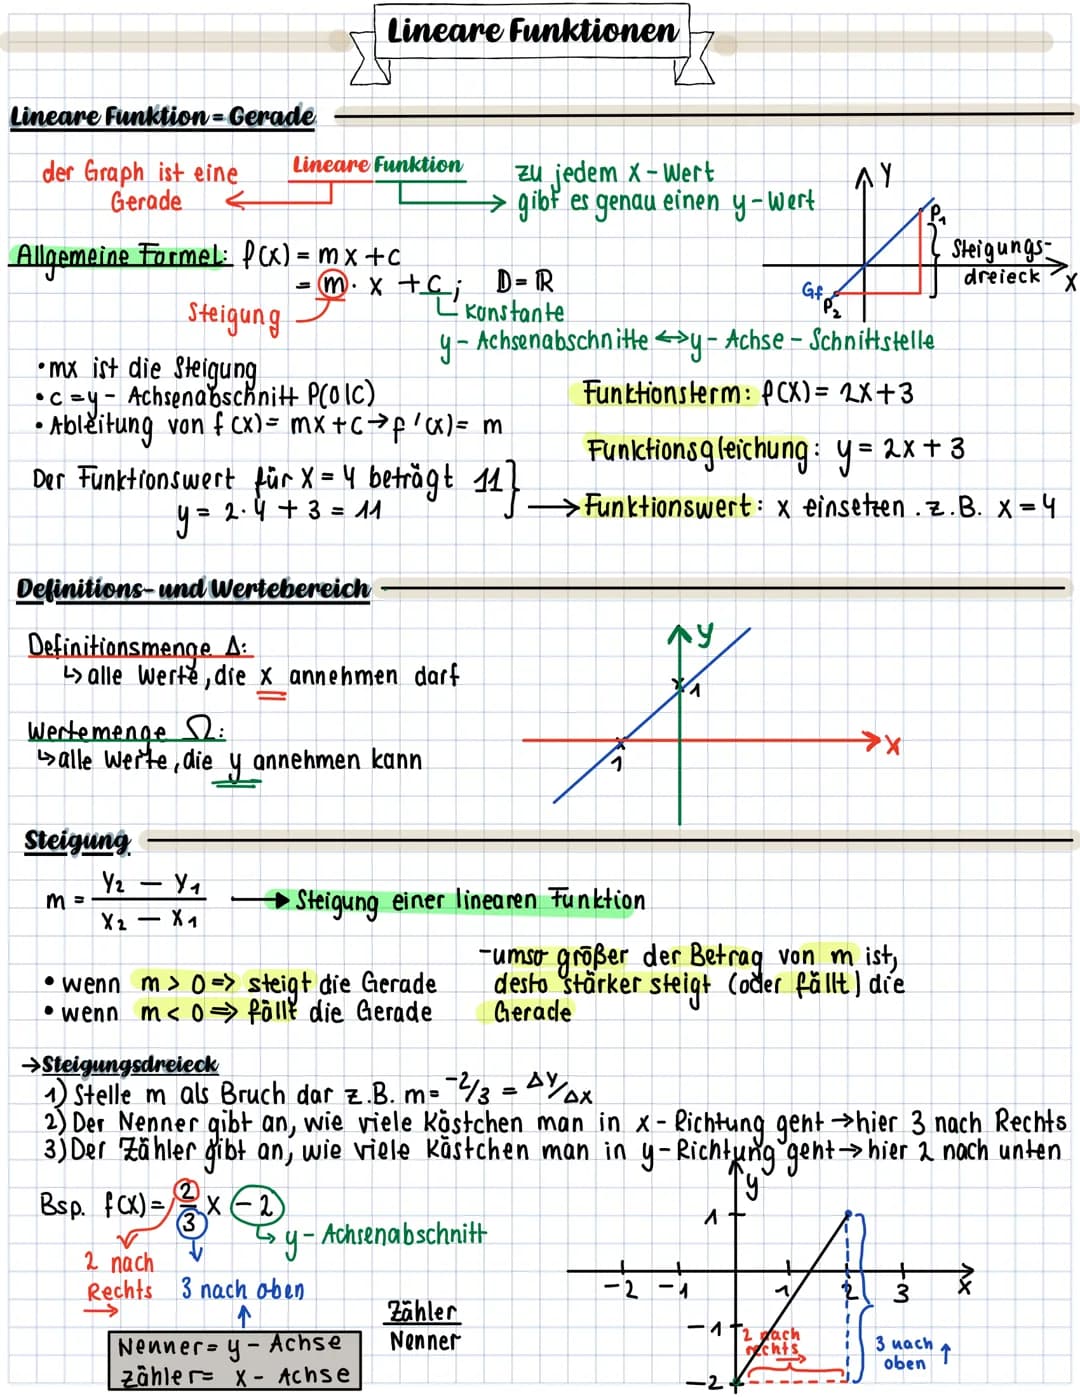 Lineare Funktionen
Lineare Funktion = Gerade
der Graph ist eine
Gerade
Lineare Funktion
zu jedem x-Wert
gibt es genau einen y-Wert
Y
P₁
Steigungs-
dreieck
X
Gf
P₂
Allgemeine Formel: f(x) = mx+c
= m · x + c; D=ℝ
Steigung
Konstante
y-Achsenabschnitte ↔ y-Achse-Schnittstelle
• mx ist die Steigung
• c = y-Achsenabschnitt P(0|C)
• Ableitung von f(x) = mx+c → f'(x) = m
Funktionsterm: f(x) = 2x+3
Funktionsgleichung: y = 2x + 3
Der Funktionswert für X = 4 beträgt 11}
y = 2·4 + 3 = 11
→ Funktionswert: x einsetzen. z.B. x = 4
Definitions- und Wertebereich
Definitionsmenge Δ:
↳ alle Werte, die x annehmen darf
Wertemenge Ω:
↳ alle Werte, die y annehmen kann
y
1
x
1
Steigung
m = Y₂ − Y₁ / X₂ − X₁ → Steigung einer linearen Funktion
• wenn m > 0 => steigt die Gerade
• wenn m < 0 => fällt die Gerade
- umso größer der Betrag von m ist,
desto stärker steigt (oder fällt) die
Gerade
→ Steigungsdreieck
1) Stelle m als Bruch dar z.B. m = -2/3 = ΔY/ΔX
2) Der Nenner gibt an, wie viele Kästchen man in x-Richtung geht → hier 3 nach Rechts
3) Der Zähler gibt an, wie viele Kästchen man in y-Richtung geht → hier 2 nach unten
Bsp. f(x) = 2/3 x − 2
↳ y-Achsenabschnitt
2 nach
Rechts
3 nach oben
Nenner = y-Achse
Zähler = x-Achse
Zähler
Nenner
y
1
-2 -1 1 2 3 X
-1
2 nach
rechts
3 nach
oben
-2